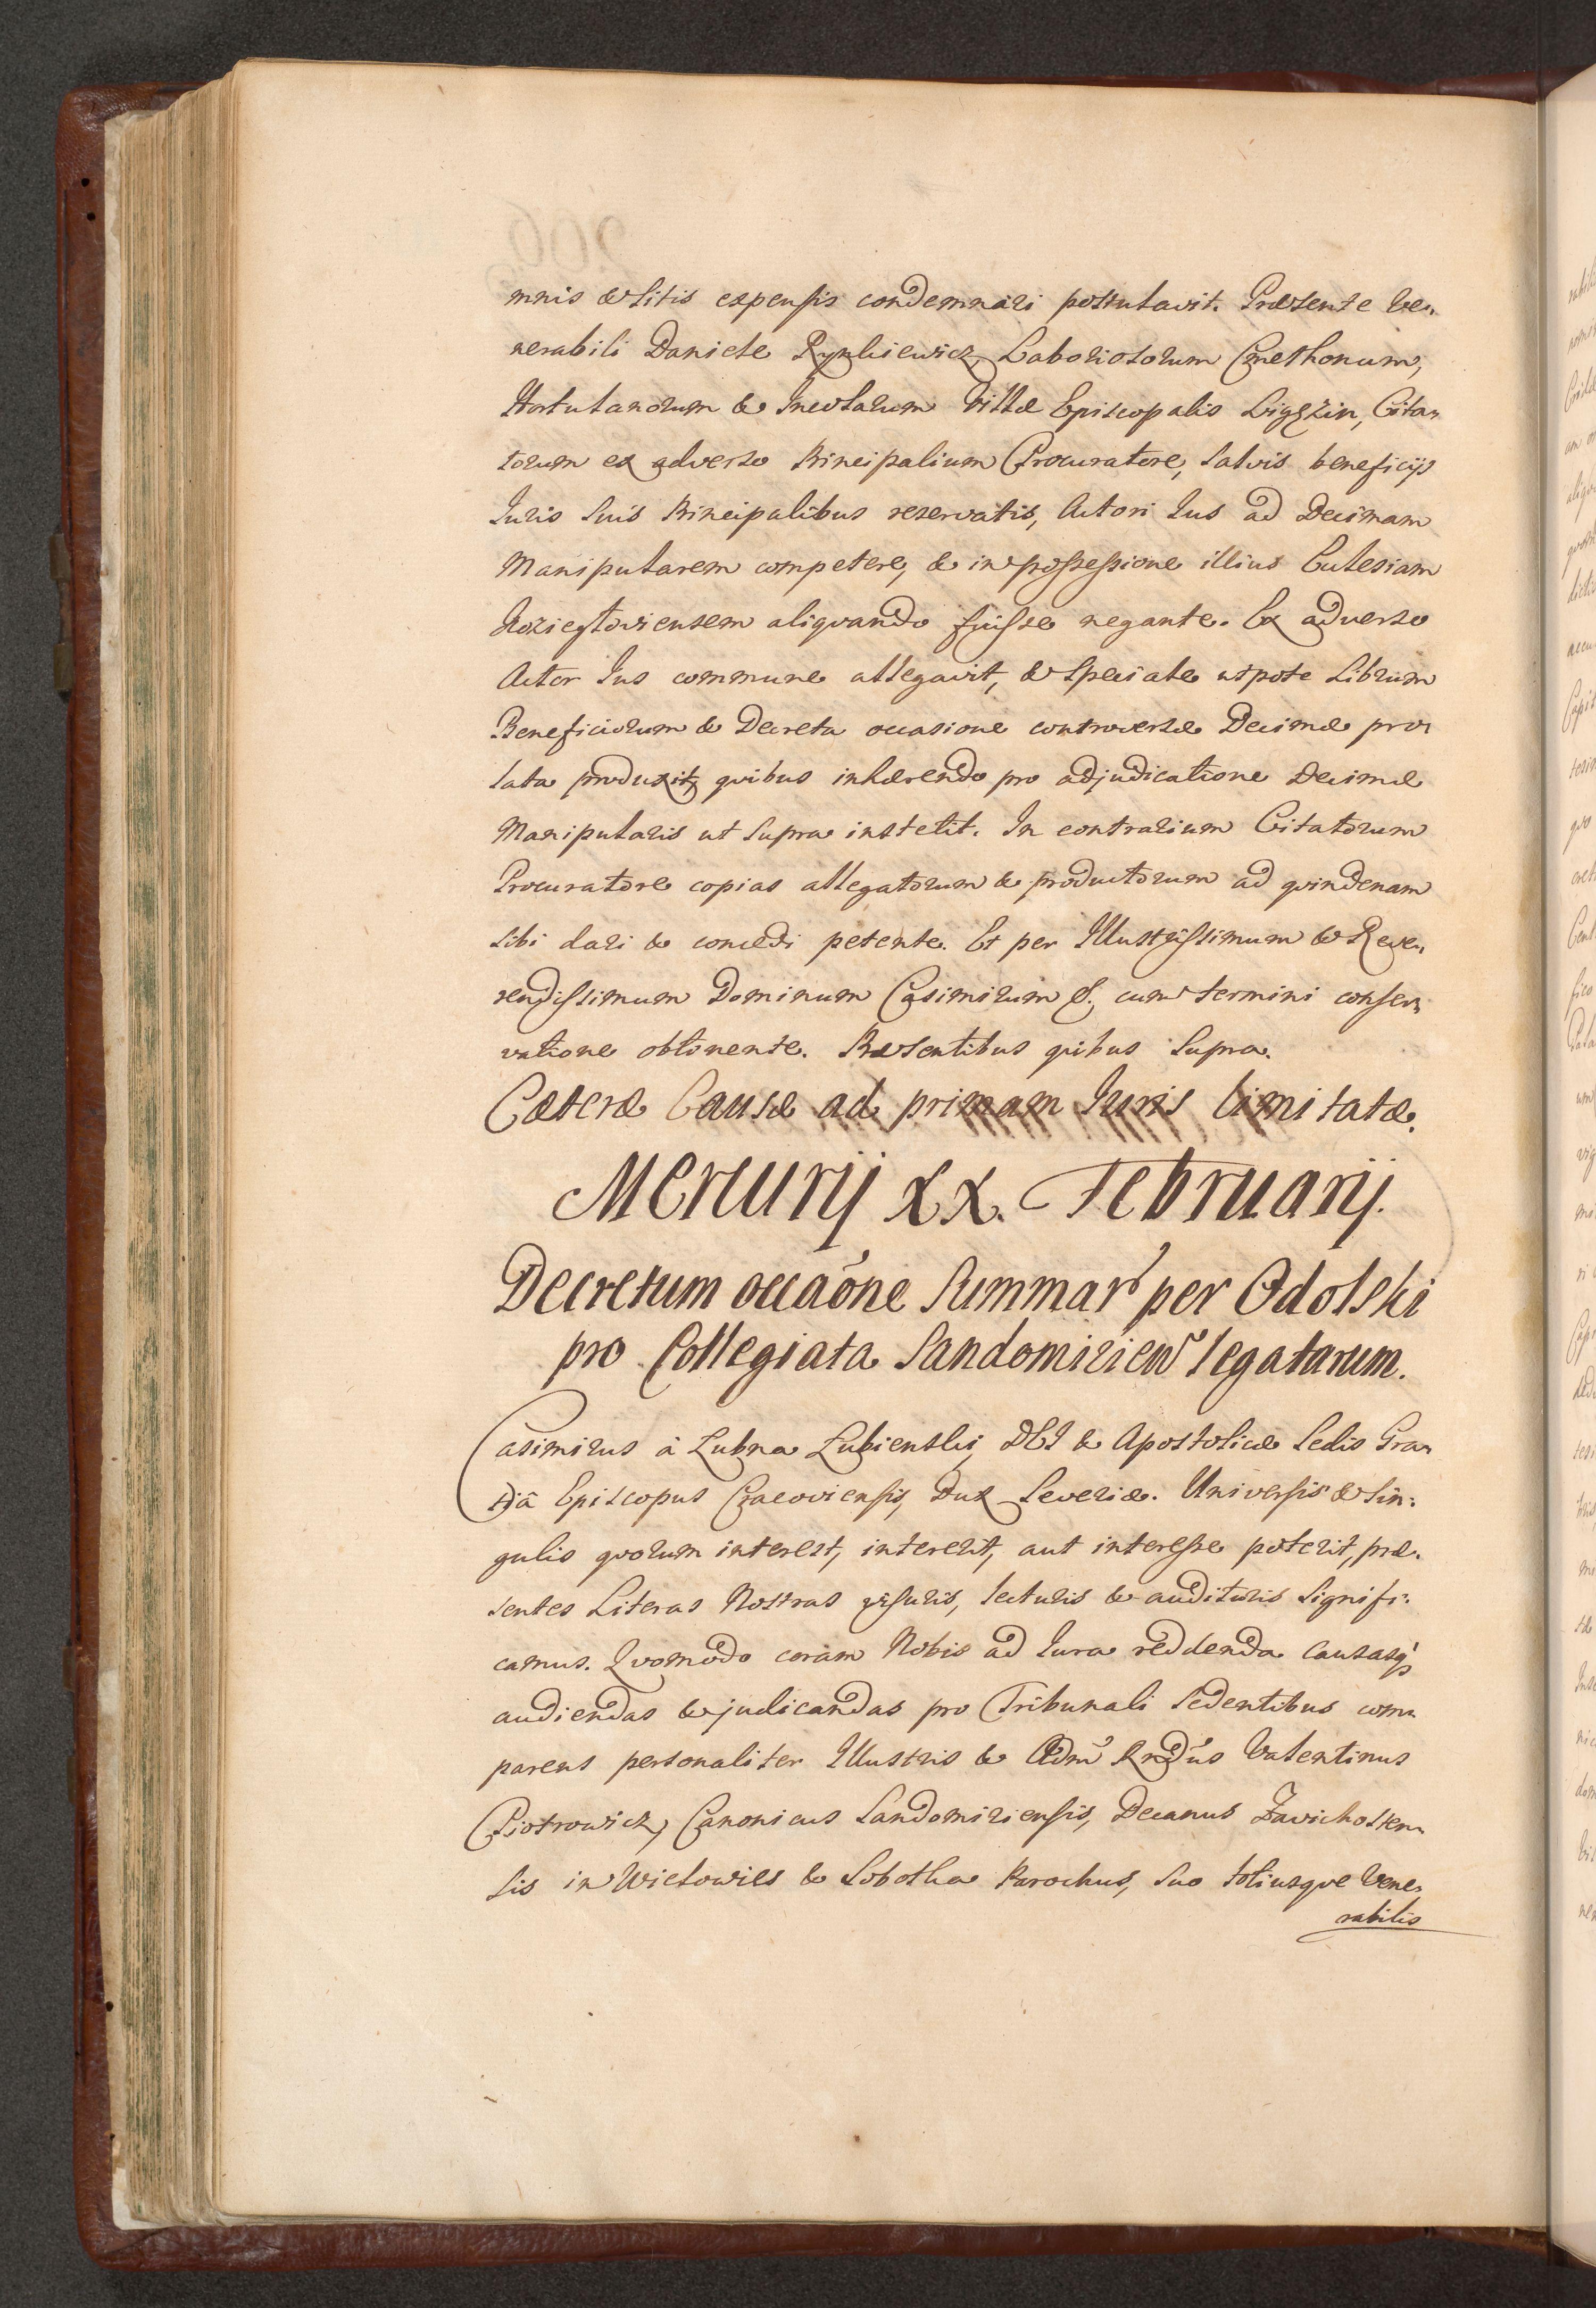 mnis & litis expensis condemnari postulavit. Præsente Ve-
nerabili Daniele Rynkiewicz, Laboriosorum Cmethonum,
Hortulanorum & Incolarum Villæ Episcopalis Ligęzin, Cita-
torum ex adverso Principalium Procuratore, salvis beneficijs
Iuris suis Principalibus reservatis, Actori Ius ad Decimam
Manipularem competere, & in possessione illius Ecclesiam
Kozieglowiensem aliqvando fuisse negante. Ex adverso
Actor Ius commune allegavit, & speciale utpote Librum
Beneficiorum & Decreta occasione controversæ Decimæ pro-
lata produxit, qvibus inhærendo pro adjudicatione Decimæ
Manipularis ut supra institit. In contrarium Citatorum
Procuratore copias allegatorum & productorum ad qvindenam
sibi dari & concedi petente. Et per Illustrissimum & Reve-
rendissimum Dominum Casimirum &. cum termini conser-
vatione obtinente. Præsentibus qvibus supra.
Cæteræ Causæ ad primam Iuris limitatæ.
Mercurij XX. Februarij.
Decretum occaõne Summar' per Odolski
pro Collegiata Sandomirien' legatarum.
Casimirus à Łubna Łubienski, DEI & Apostolicæ Sedis Gra-
tiâ Episcopus Cracoviensis, Dux Severiæ. Universis & sin-
gulis qvorum interest, intererit, aut interesse poterit, præ-
sentes Literas Nostras visuris, lecturis & audituris signifi-
camus. Qvomodo coram Nobis ad Iura reddenda causasq;
audiendas & judicandas pro Tribunali sedentibus com-
parens personaliter Illustris & Adm' Rndus Valentinus
Piotrowicz, Canonicus Sandomiriensis, Decanus Zavichosten-
sis in Wielowies & Sobotka Parochus, suo totiusqve Vene-
rabilis